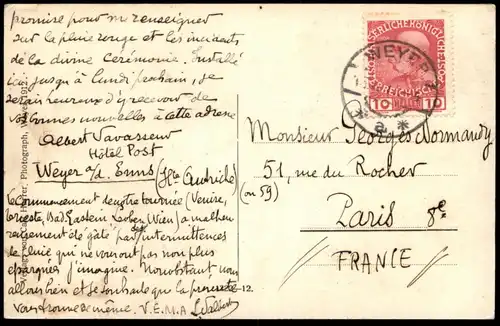 promise pour me renseigner
sur la pluie rouge et les incidents
de la divine Cérémonie. Installé
ici jusqu'à lundi prochain, je
serais heureux d'y recevoir de
vos bonnes nouvelles à cette adresse
Albert Vavasseur
Hôtel Post
Weyer a/d. Enns (Hte Autriche)
Le Commencement de notre tournée (Venise,
Trieste, Bad Gastein, Leoben, Wien) a malheu-
reusement été gâté par des intermittences
de pluie qui ne vous ont pas non plus
épargnés j'imagine. Nonobstant nous
allons bien et je souhaite que la présente
vous trouve de même. V.E.M.A
12.
Photograph, W
1912
KAISERLICHE KÖNIGLICHE
ÖSTERREICHISCHE POST
10 HELLER 10
WEYER
* a *
Monsieur Georges Normandy
51, rue du Rocher
(ou 59)
Paris 8e
FRANCE